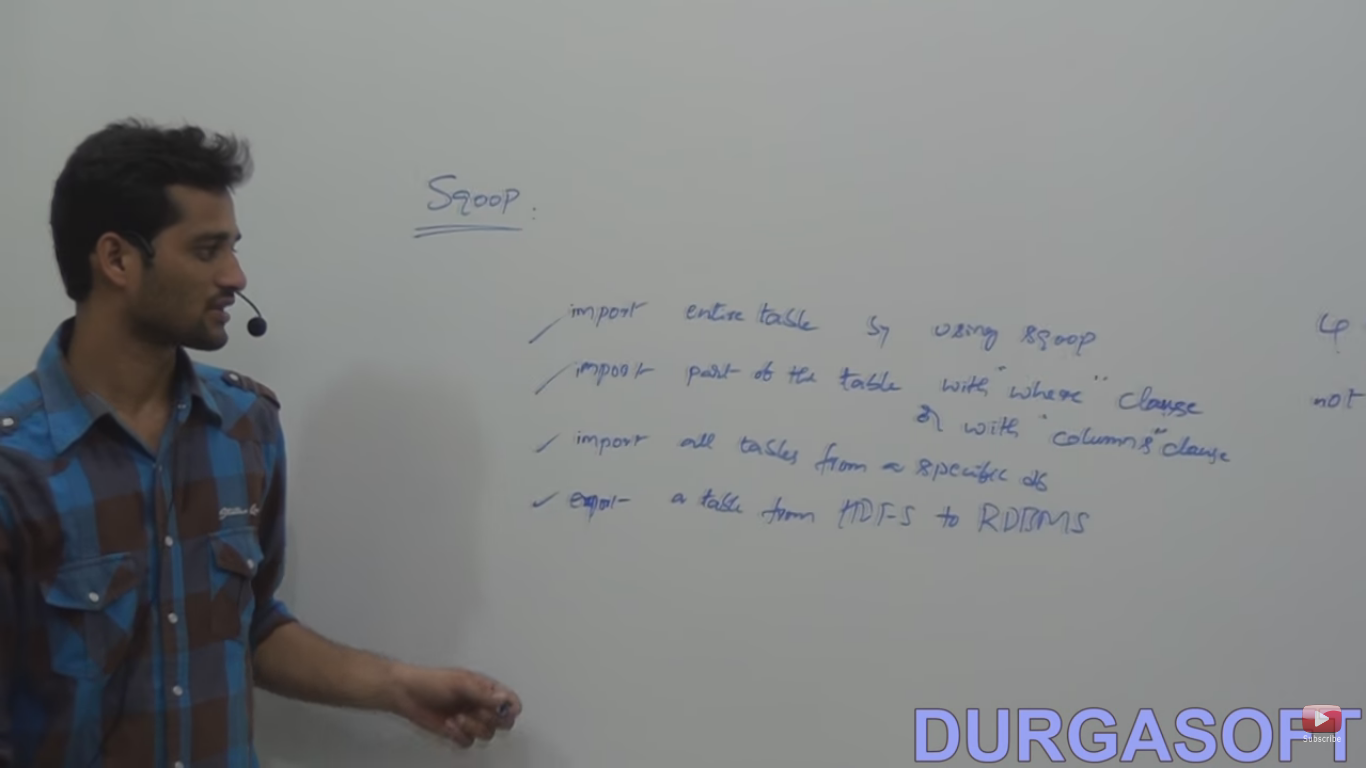 Sqoop :
import entire table by using sqoop
import part of the table with "where" clause
or with "columns" clause
import all tables from a specific db
export a table from HDFS to RDBMS
not
DURGASOFT
Subscribe